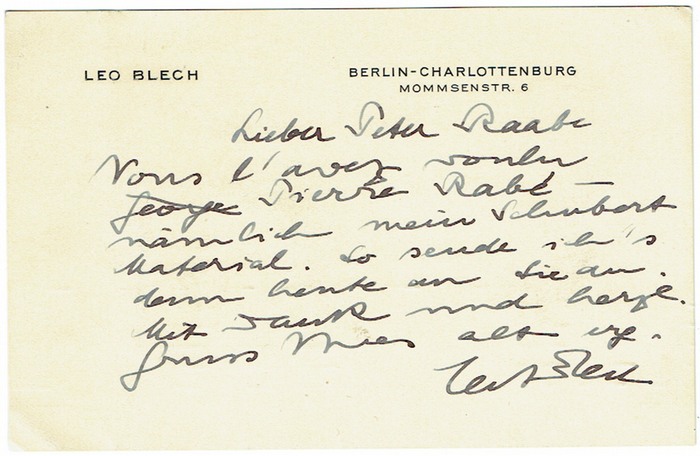 LEO BLECH
BERLIN-CHARLOTTENBURG
MOMMSENSTR. 6
Lieber Peter Raabe
Vous l'avez voulu
George Pierre Rabé —
nämlich mein Schubert
Material. So sende ich's
denn heute an Sie an.
Mit Dank und herzl.
Gruss Ihres alt erg.
Leo Blech